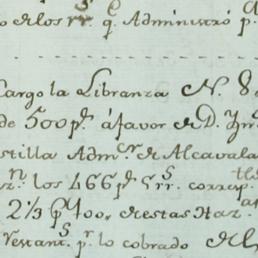 o de los rr.^s q.^e Administró p.^r
Cargo la Libranza N. 8
de 500 p.^s á favor de D.
stilla Adm.^or de Alcavala
los 466 p.^s 5 rr.^s corresp.^tes
2 1/3 p.^r 100. de estas Haz.
Restant.^s p.^r lo cobrado de